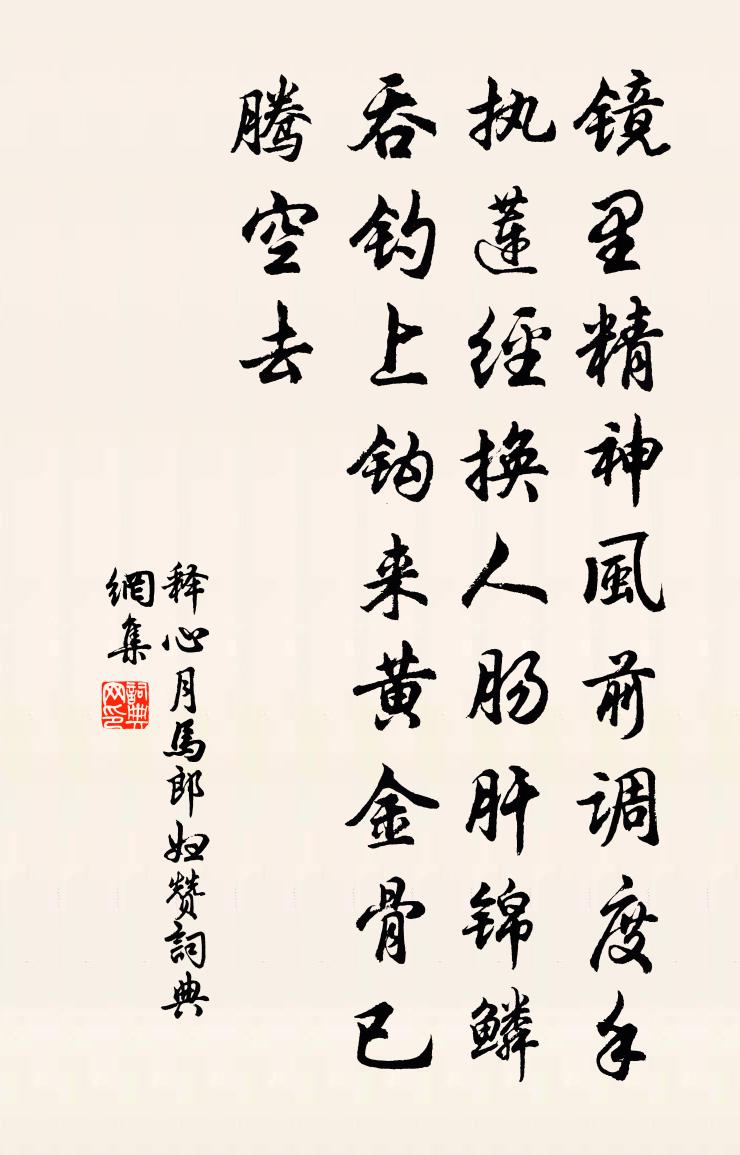 镜里精神風前调度手
执蓮經换人肠肝锦鳞
吞钓上钩来黄金骨已
腾空去
释心月馬郎妇赞詞典
網集
詞典
网印